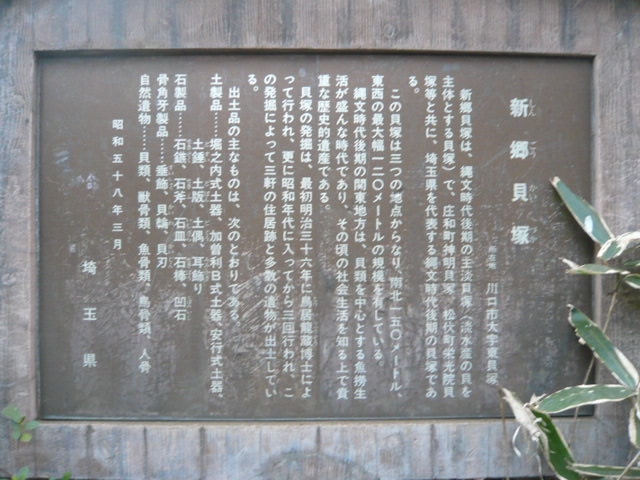 新郷貝塚
所在地 川口市大字東貝塚
新郷貝塚は、縄文時代後期の主淡貝塚（淡水産の貝を
主体とする貝塚）で、庄和町神明貝塚、松伏町栄光院貝
塚等と共に、埼玉県を代表する縄文時代後期の貝塚であ
る。
この貝塚は三つの地点からなり、南北一五〇メートル、
東西の最大幅一二〇メートルの規模を有している。
縄文時代後期の関東地方は、貝類を中心とする魚撈生
活が盛んな時代であり、その頃の社会生活を知る上で貴
重な歴史的遺産である。
貝塚の発掘は、最初明治三十六年に鳥居龍蔵博士によ
って行われ、更に昭和年代に入ってから三回行われ、こ
の発掘によって三軒の住居跡と多数の遺物が出土してい
る。
出土品の主なものは、次のとおりである。
土製品……堀之内式土器、加曽利B式土器、安行式土器、
土錘、土版、土偶、耳飾り
石製品……石鏃、石斧、石皿、石棒、凹石
骨角牙製品……垂飾、貝輪、貝刃
自然遺物……貝類、獣骨類、魚骨類、鳥骨類、人骨
昭和五十八年三月
埼玉県